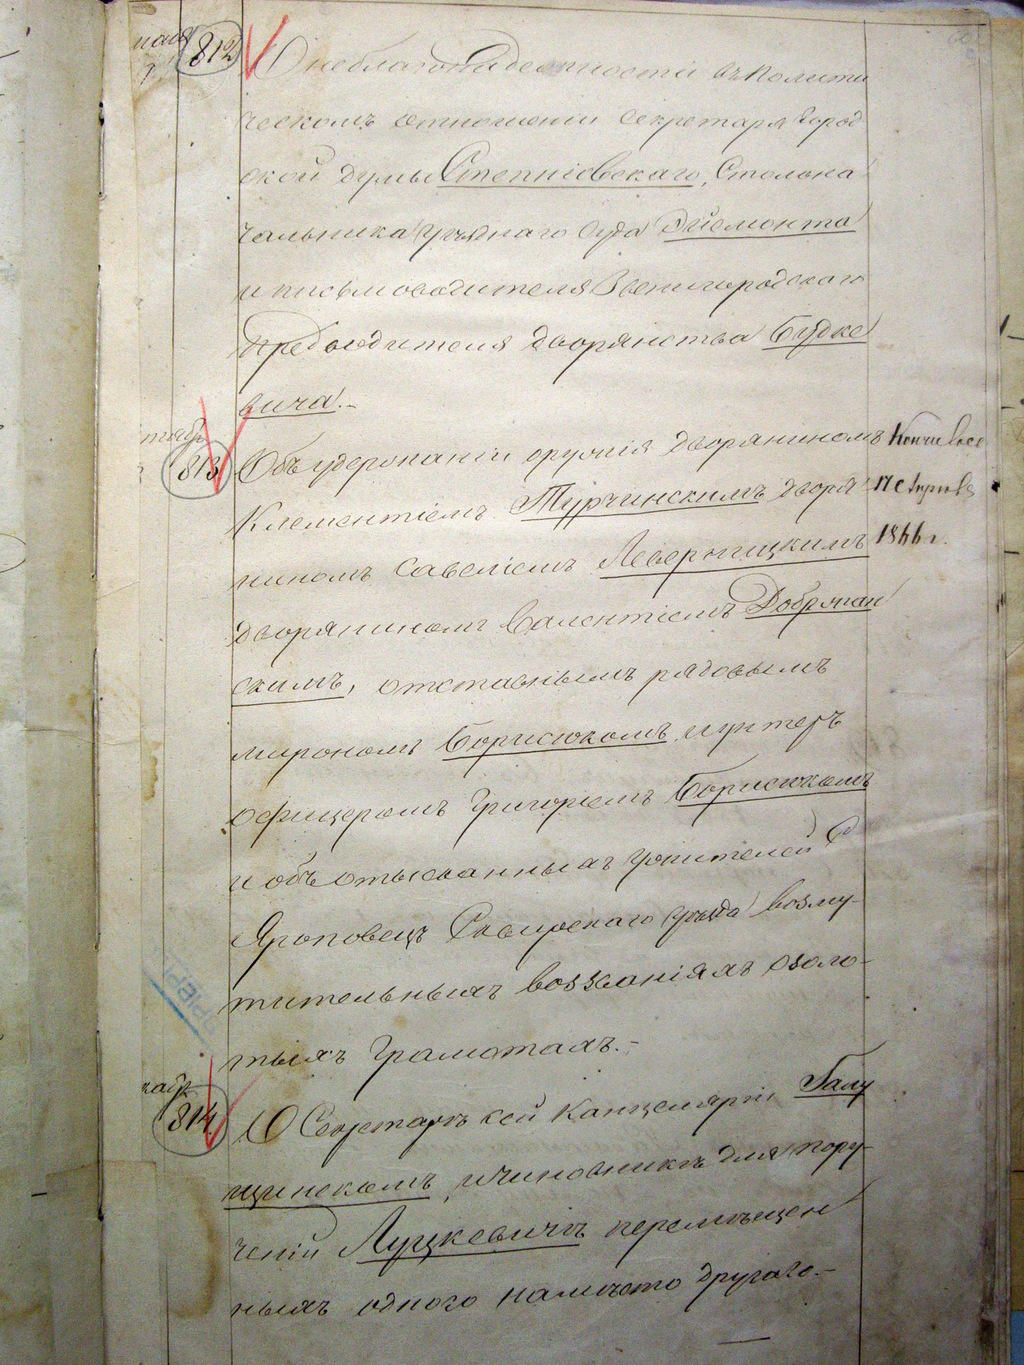 812
О неблагонадежности въ полити
ческомъ отношеніи секретаря город
ской думы Степпковскаго, Столона
чальника уѣзднаго Суда Дисмонта
и письмоводителя Звенигородскаго
предводителя дворянства Будке
вича.-
813
Объ удержаніи оружія дворяниномъ
Клементіемъ Турчинскимъ, дворя
ниномъ Савеліемъ
дворяниномъ Валентіемъ Добржан
скимъ, отставнымъ рядовымъ
Мирономъ Борисюкомъ, и унтеръ
офицеромъ Григоріемъ Борисюкомъ
и объ отысканныхъ у жителей с.
Яроповецъ Сквирскаго уѣзда возму-
тительныхъ воззваніяхъ о золо-
тыхъ грамотахъ.-
17 Апрѣля
1866 г.
814
О Секретарѣ сей Канцеляріи Галу
щинскомъ, и чиновникѣ для пору-
ченій Луцкевичѣ перемѣщен
ныхъ одного на мѣсто другаго.-